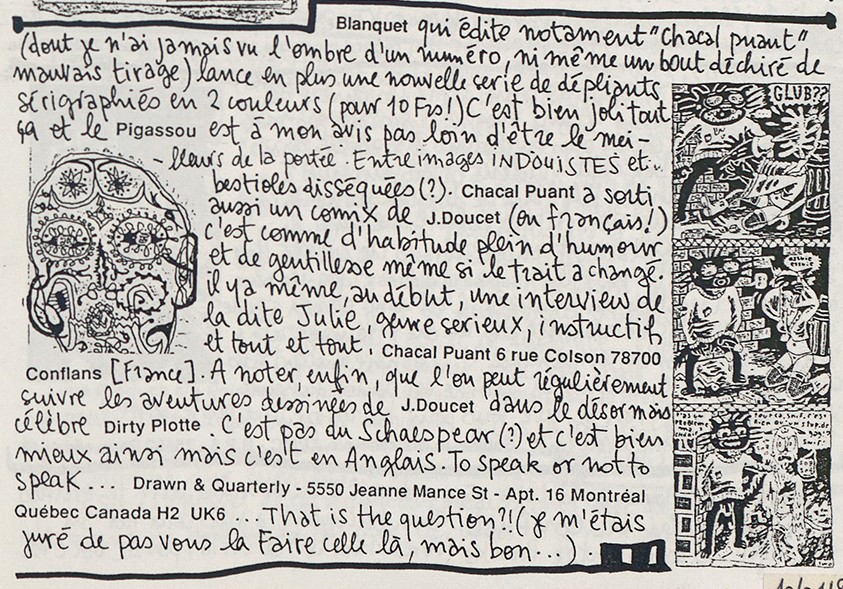 Blanquet qui édite notamment "Chacal puant"
(dont je n'ai jamais vu l'ombre d'un numéro, ni même un bout déchiré de
mauvais tirage) lance en plus une nouvelle serie de dépliants
sérigraphiés en 2 couleurs (pour 10 Frs!) C'est bien joli tout
ça et le Pigassou est à mon avis pas loin d'être le mei-
-lleurs de la portée. Entre images INDOUISTES et..
bestioles disséquées (?). Chacal Puant a sorti
aussi un comix de J.Doucet (en français!)
c'est comme d'habitude plein d'humour
et de gentillesse même si le trait a changé.
il ya même, au début, une interview de
la dite Julie, genre serieux, instructif
et tout et tout. Chacal Puant 6 rue Colson 78700
Conflans [France]. A noter, enfin, que l'on peut régulièrement
suivre les aventures dessinées de J.Doucet dans le désormais
célèbre Dirty Plotte. C'est pas du Schaespear (?) et c'est bien
mieux ainsi mais c'est en Anglais. To speak or not to
speak... Drawn & Quarterly - 5550 Jeanne Mance St - Apt. 16 Montréal
Québec Canada H2 UK6 ...That is the question?! (je m'étais
juré de pas vous la Faire celle là, mais bon...)
GLUB??